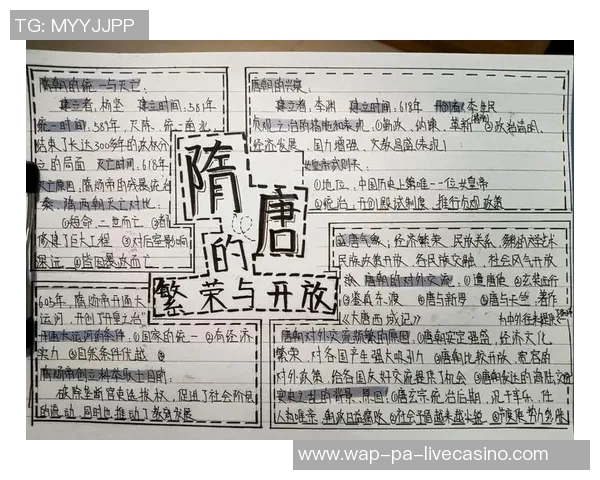 TG: MYYJJPP
隋朝的统一与灭亡:
建立者:杨坚 建立时间:581年
统一时间:589年 灭陈 统一南北
结束了长达300多年的分
立的局面 灭亡时间:618年
灭亡原因:隋炀帝的残暴统治
秦、隋两朝灭亡对比:
①短命,二世而亡 ②都
修建了巨大工程 ③对后世影响
深远 ④皆因暴政而亡
605年,隋炀帝开通大
运河
开通大运河的条件:①国家的统一 ②有经济
实力 ③自然条件优越
隋炀帝创立科举取士目的:
促进了社会阶层
的流动,同时也推动了教育发展
隋唐的
繁荣与开放
唐朝的兴衰:
建立者:李渊 建立时间:618年 李世民
贞观之治的措施和表现:①勤政、纳谏、革新 ②政治清明,
经济发展 国力增强 文教昌盛(表现)
女皇帝武则天:
①地位:中国历史上第唯一一位女皇帝
②统治:开创殿试制度 推行贞观政策
盛唐气象:经济繁荣 民族关系
民族政策开放 各民族交融 社会风气开放
唐朝的对外交流:①遣唐使 ②玄奘西行
③鉴真东渡 ④唐与新罗 ⑤唐与天竺 著作
《大唐西域记》
唐朝对外交流频繁的原因:①唐朝安定强盛,经济文化
繁荣,对各国产生强大吸引力 ②唐朝比较开放,宽容的
对外政策,给各国友好交流提供了机会 ③唐朝发达的海陆交通
安史之乱的背景、原因:①唐玄宗统治后期,沉于享乐,任
人为唯亲,朝政日益腐败 ②社会矛盾越来越尖锐 ③节度使势力膨胀
www-wap-pa-livecasino.com